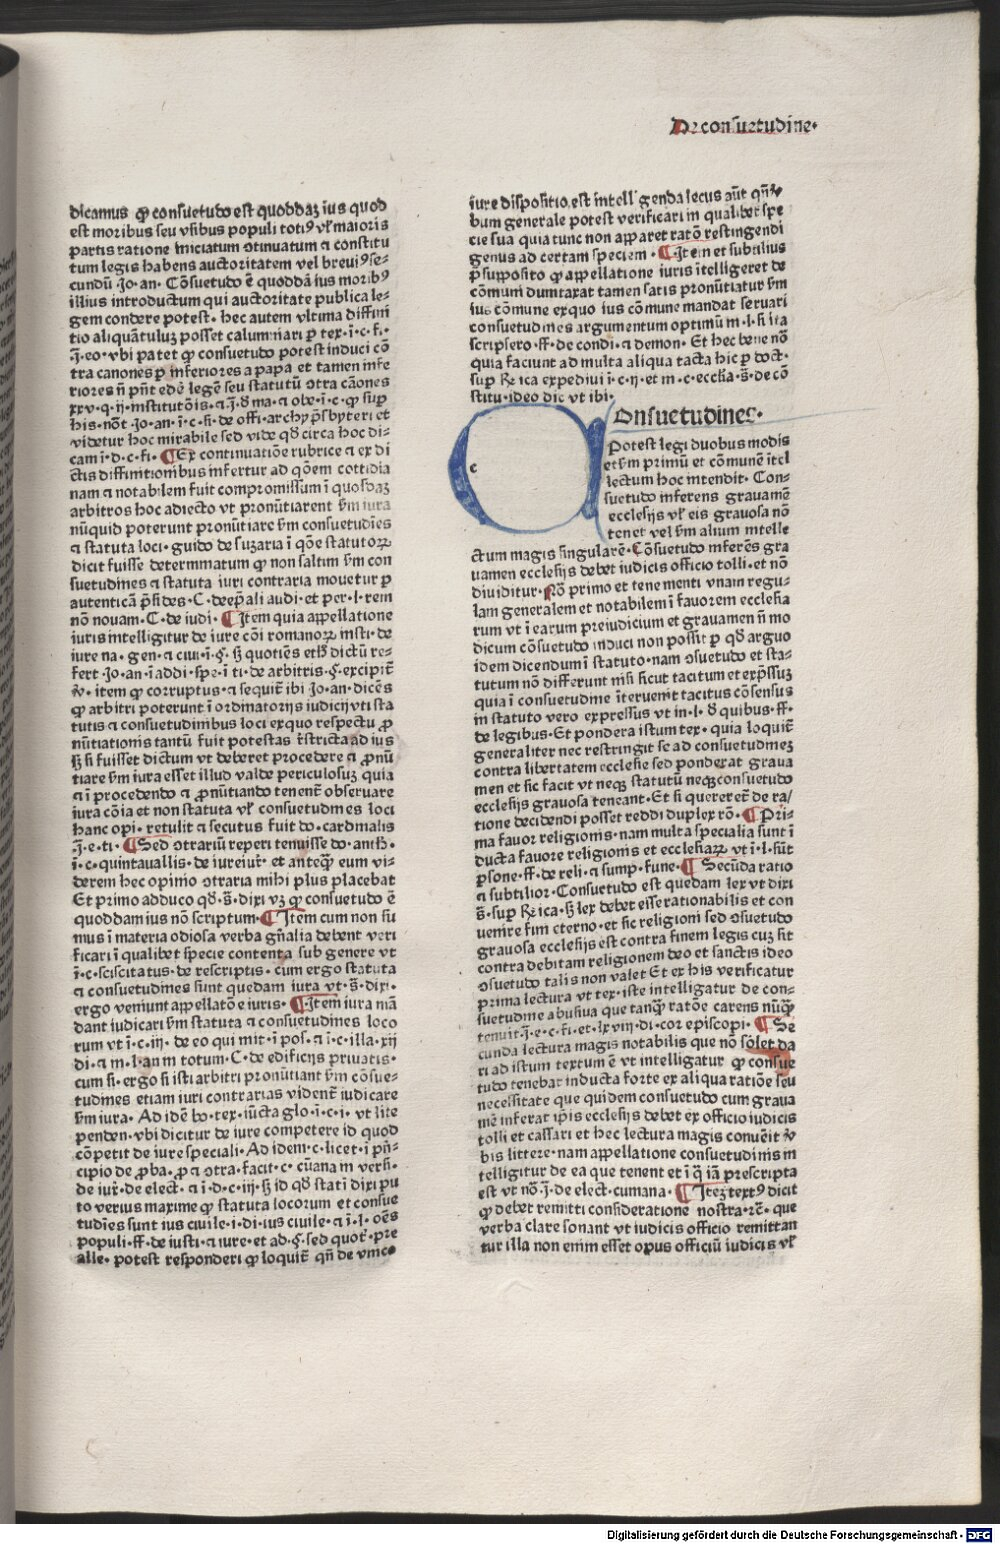 De consuetudine·
dicamus ꝙ consuetudo est quoddaʒ ius quod
est moribus seu vsibus populi totiꝰ vl̕ maioris
partis ratione iniciatum ɔtinuatum ⁊ constitu
tum legis habens auctoritatem vel breuiꝰ se⸗
cundū ·Jo·an· Cōsuetudo ē quoddā ius moribꝰ
illius introductum qui auctoritate publica le⸗
gem condere potest· hec autem vltima diffini
tio aliquātuluʒ posset calumniari ꝑ tex·ī·c·fi·
·ī·eo·vbi patet ꝙ consuetudo potest induci cō
tra canones ꝑ inferiores a papa et tamen infe
riores n̄ pn̄t edē legē seu statutū ɔtra cāones
xxv·q·ij·institutōis·⁊
his·nōt·Jo·an·ī·c·fi·de offi·archyp̄sbyteri et
videtur hoc mirabile sed vide qđ circa hoc di⸗
cam ī·d·c·fi· ¶Ex continuatiōe rubrice ⁊ ex di
ctis diffinitionibus infertur ad q̄ōem cottidia
nam ⁊ notabilem fuit compromissum ī quosdaʒ
arbitros hoc adiecto vt pronūtiarent ẜm iura
nūquid poterunt pronūtiare ẜm consuetudīes
⁊ statuta loci·guido de suzaria ī q̄ōe statutoꝝ
dicit fuisse determinatum ꝙ non saltim ẜm con
suetudines ⁊ statuta iuri contraria mouetur ꝑ
autenticā p̄sides·C·de ep̄ali audi·et per·l·rem
nō nouam·C·de iudi· ¶Item quia appellatione
iuris intelligitur de iure cōi romanoꝝ insti·de
iure na·gen·⁊ ciui·ī·§· sꝫ quotiēs etħ dictū re⸗
fert·Jo·an·ī addi·spe·ī ti·de arbitris·§·excipit̄
v̄·item ꝙ corruptus·⁊ sequit̄ ibi Jo·an·dicēs
ꝙ arbitri poterunt ī ordinatorijs iudicij vti sta
tutis ⁊ consuetudinibus loci exquo respectu ꝓ
nūtiationis tantū fuit potestas r̄stricta ad ius
sꝫ si fuisset dictum vt deberet procedere ⁊ ꝓnū
tiare ẜm iura esset illud valde periculosuʒ quia
⁊ ī procedendo ⁊ ꝓnūtiando tenent̄ obseruare
iura cōia et non statuta vl̕ consuetudines loci
hanc opi· retulit ⁊ secutus fuit do·cardinalis
·ī·e·ti· ¶Sed ɔtrariū reperi tenuisse do·anth·
ī·c·quintauallis·de iureiur̄·et anteꝙ̄ eum vi⸗
derem hec opinio ɔtraria mihi plus placebat
Et primo adduco qđ·s̄·dixi vʒ ꝙ consuetudo ē
quoddam ius nō scriptum· ¶Item cum non su
mus ī materia odiosa verba gn̄alia debent veri
ficari ī qualibet specie contenta sub genere vt
ī·c·sciscitatus·de rescriptis·cum ergo statuta
⁊ consuetudines sunt quedam iura vt·s̄·dixi·
ergo veniunt appellatōe iuris· ¶Item iura mā
dant iudicari ẜm statuta ⁊ consuetudines loco
rum vt ī·c·iij·de eo qui mit·ī pos·⁊ ī·c·illa·xij
di·⁊ m·l·an in totum·C·de edificijs priuatis·
cum si·ergo si isti arbitri pronūtiant ẜm cōsue⸗
tudines etiam iuri contrarias vident̄ iudicare
ẜm iura· Ad idē bo·tex·iūcta glo·ī·c·i·vt lite
penden·vbi dicitur de iure competere id quod
cōpetit de iure speciali·Ad idem·c·licet·ī pn̄⸗
cipio de ꝓba·ꝓ ⁊ ɔtra·facit·c·cūana in versi·
de iur̄·de elect·⁊ ī·d·c·iij·sꝫ id qđ statī dixi pu
to verius maxime ꝙ statuta locorum et consue
tudīes sunt ius ciuile·i·di·ius ciuile·⁊ ī·l·oēs
populi·ff·de iusti·⁊ iure·et ad·§·sed quot̄·pre
alle·potest responderi ꝙ loquit̄ qn̄ de vnico
iure dispositio est intelligenda secus aūt qn̄ v̄
bum generale potest verificari in qualibet spe
cie sua quia tunc non apparet ratō restingendi
genus ad certam speciem · ¶Item et subtilius
p̄supposito ꝙ appellatione iuris ītelligeret de
cōmuni dumtaxat tamen satis pronūtiatur ẜm
ius cōmune exquo ius cōmune mandat seruari
consuetudines argumentum optimū in·l·si ita
scripsero·ff·de condi·⁊ demon· Et hec bene nō
quia faciunt ad multa aliqua tacta hic ꝑ doct·
suꝑ Rƚica expediui ī·c·ij·et in·c·eccƚia·s̄·de cō
stitu·ideo dic vt ibi·
c
Onsuetudines·
Potest legi duobus modis
et ẜm primū et cōmunē itel
lectum hoc intendit· Con⸗
suetudo inferens grauamē
ecclesijs vl̕ eis grauosa nō
tenet vel ẜm alium intelle
ctum magis singularē·Cōsuetudo inferēs gra
uamen ecclesijs debet iudicis officio tolli·et nō
diuiditur·Nō primo et tene menti vnam regu⸗
lam generalem et notabilem ī fauorem ecclesia
rum vt ī earum preiudicium et grauamen n̄ mo
dicum cōsuetudo induci non possit ꝑ qđ arguo
idem dicendum ī statuto·nam ɔsuetudo et sta⸗
tutum nō differunt nisi sicut tacitum et exp̄ssuʒ
quia ī consuetudine īteruenit tacitus cōsensus
in statuto vero expressus vt in·l·đ quibus·ff·
de legibus·Et pondera istum tex·quia loquit̄
generaliter nec restringit se ad consuetudineʒ
contra libertatem ecclesie sed ponderat graua
men et sic facit vt neqꝫ statutū neqꝫ consuetudo
ecclesijs grauosa teneant·Et si quereret̄ de ra/
tione decidendi posset reddi duplex rō· ¶Pri⸗
ma fauor religionis·nam multa specialia sunt ī
ducta fauore religionis et ecclesiaꝝ vt ī·l·sūt
ꝑsone·ff·de reli·⁊ sump·fune· ¶Secūda ratio
⁊ subtilior·Consuetudo est quedam lex vt dixi
s̄·suꝑ Rƚica·sꝫ lex debet esse rationabilis et con
uenire fini eterno·et sic religioni sed ɔsuetudo
grauosa ecclesijs est contra finem legis cuʒ sit
contra debitam religionem deo et sanctis ideo
ɔsuetudo talis non valet Et ex his verificatur
prima lectura vt tex·iste intelligatur de con⸗
suetudine abusiua que tanqꝙ ratōe carens nūqꝙ
tenuit·ī·e·c·fi·et·lxviij·di·cor episcopi· ¶Se
cunda lectura magis notabilis que nō solet da
ri ad istum textum ē vt intelligatur ꝙ consue
tudo tenebat inducta forte ex aliqua ratiōe seu
necessitate que quidem consuetudo cum graua
mē inferat ipis ecclesijs debet ex officio iudicis
tolli et cassari et hec lectura magis conuēit v̄
bis littere·nam appellatione consuetudinis in
telligitur de ea que tenent et ī q̄ iā prescripta
est vt nō·ī·de elect·cumana· ¶Iteʒ textꝰ dicit
ꝙ debet remitti consideratione nostra·rē·que
verba clare sonant vt iudicis officio remittan
tur illa non enim esset opus officiū iudicis vl̕
Digitalisierung gefördert durch die Deutsche Forschungsgemeinschaft - DFG